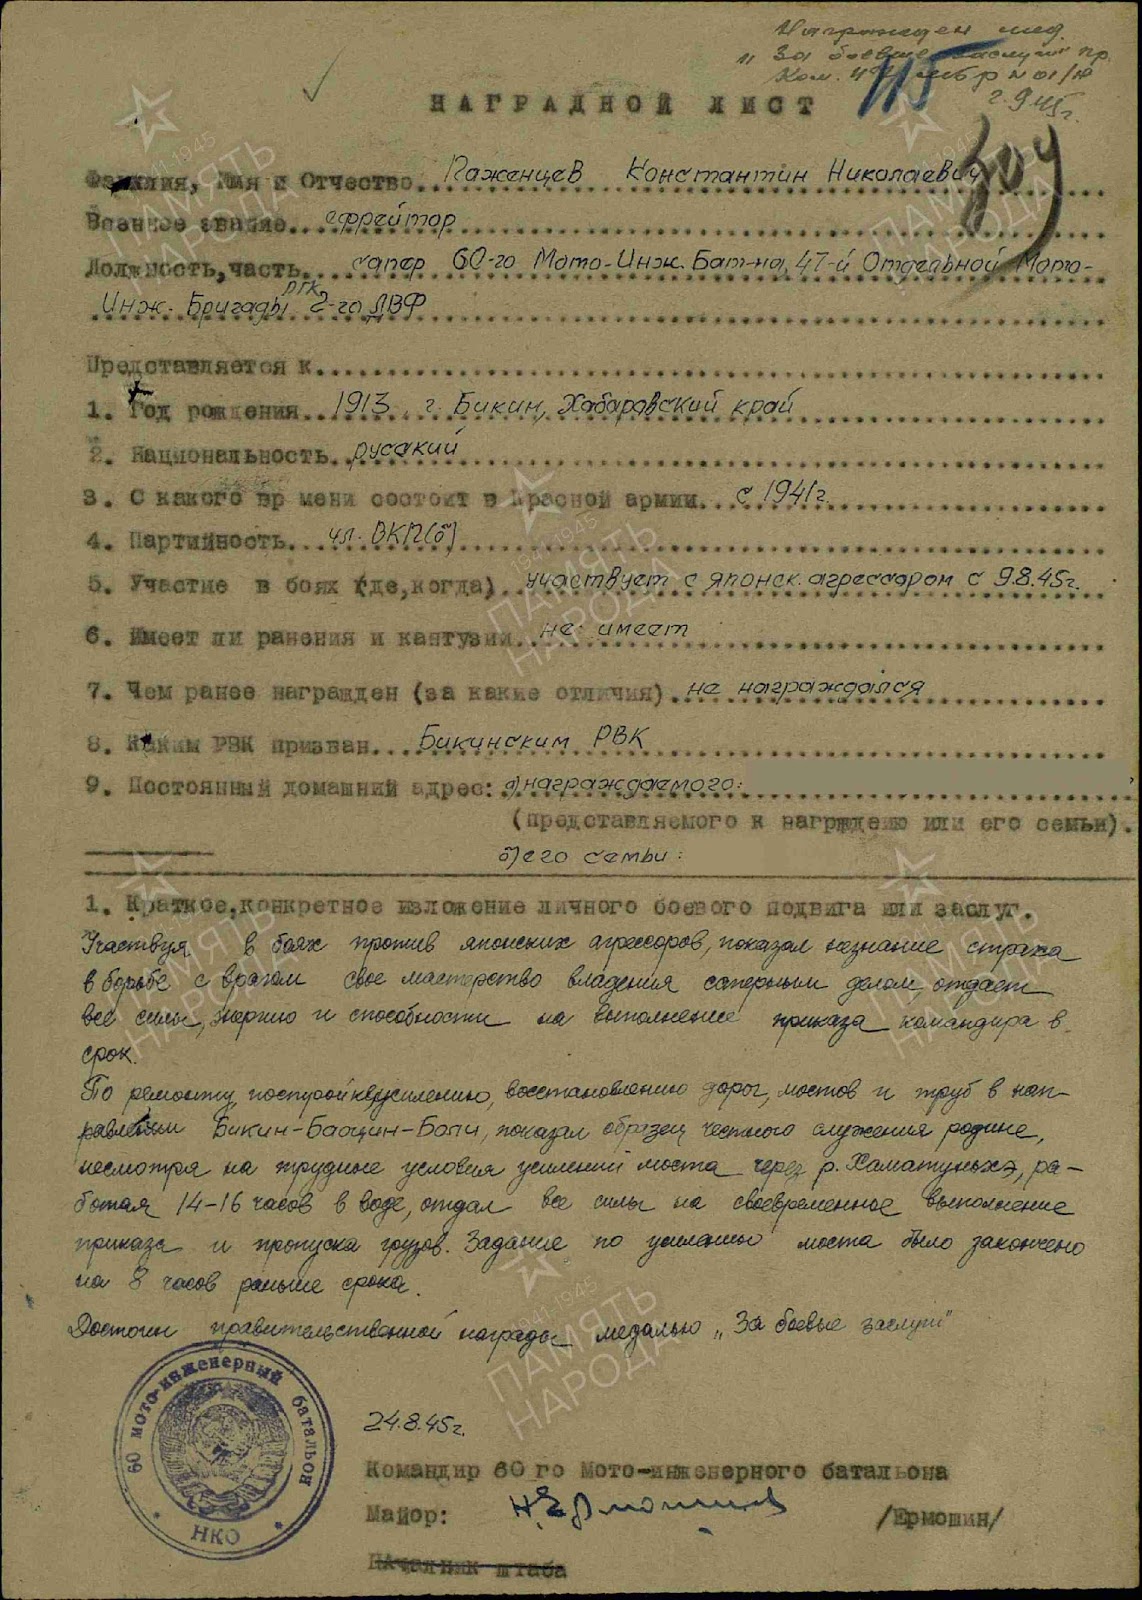 Награжден мед.
"За боевые заслуги" пр.
Ком. 47 мибр № 01/н
2.9.45г.
115
НАГРАДНОЙ ЛИСТ
Фамилия, Имя и Отчество Паженцев Константин Николаевич
Военное звание ефрейтор
Должность, часть сапер 60-го Мото-Инж. Бат-на, 47-й Отдельной Мото-
Инж. Бригады РГК 2-го ДВФ
Представляется к
1. Год рождения 1913 г. Бикин, Хабаровский край
2. Национальность русский
3. С какого вр мени состоит в Красной армии с 1941г.
4. Партийность чл. ВКП(б)
5. Участие в боях (где, когда) участвует с японск. агрессором с 9.8.45г.
6. Имеет ли ранения и кантузии не имеет
7. Чем ранее награжден (за какие отличия) не награждался
8. Каким РВК призван Бикинским РВК
9. Постоянный домашний адрес: а) награждаемого:
(представляемого к нагрждению или его семьи).
б) его семьи:
1. Краткое, конкретное изложение личного боевого подвига или заслуг.
Участвуя в боях против японских агрессоров, показал незнание страха
в борьбе с врагом свое мастерство владения саперным делом, отдает
все силы, энергию и способности на выполнение приказа командира в
срок.
По ремонту, постройке, усилению, восстановлению дорог, мостов и труб в нап-
равлении Бикин-Баоцин-Боли, показал образец честного служения родине,
несмотря на трудные условия усилений моста через р. Хаматуньхэ, ра-
ботая 14-16 часов в воде, отдал все силы на своевременное выполнение
приказа и пропуска грузов. Задание по усилению моста было закончено
на 8 часов раньше срока.
Достоин правительственной награды медалью "За боевые заслуги"
24.8.45г.
Командир 60 го Мото-инженерного батальона
Майор: Н. Ермошин /Ермошин/
Начальник штаба
60 мото-инженерный батальон
НКО
ПАМЯТЬ НАРОДА
1941-1945